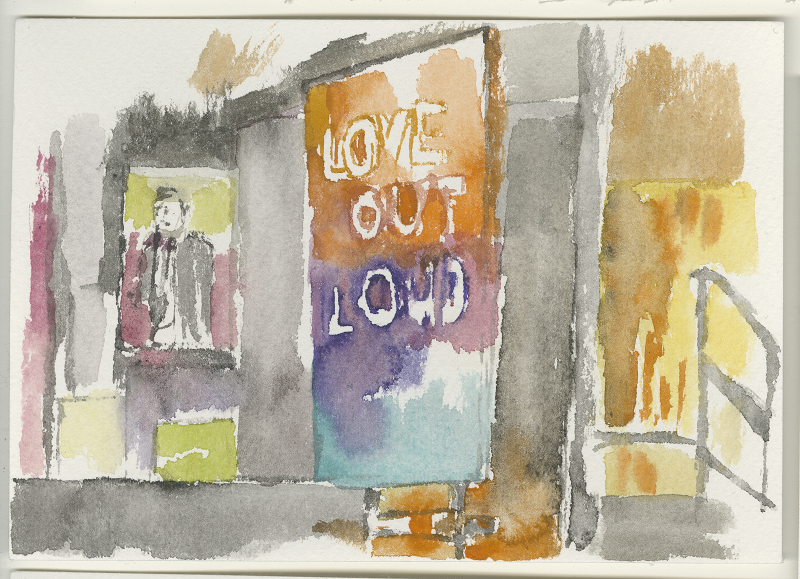 LOVE
OUT
LOUD